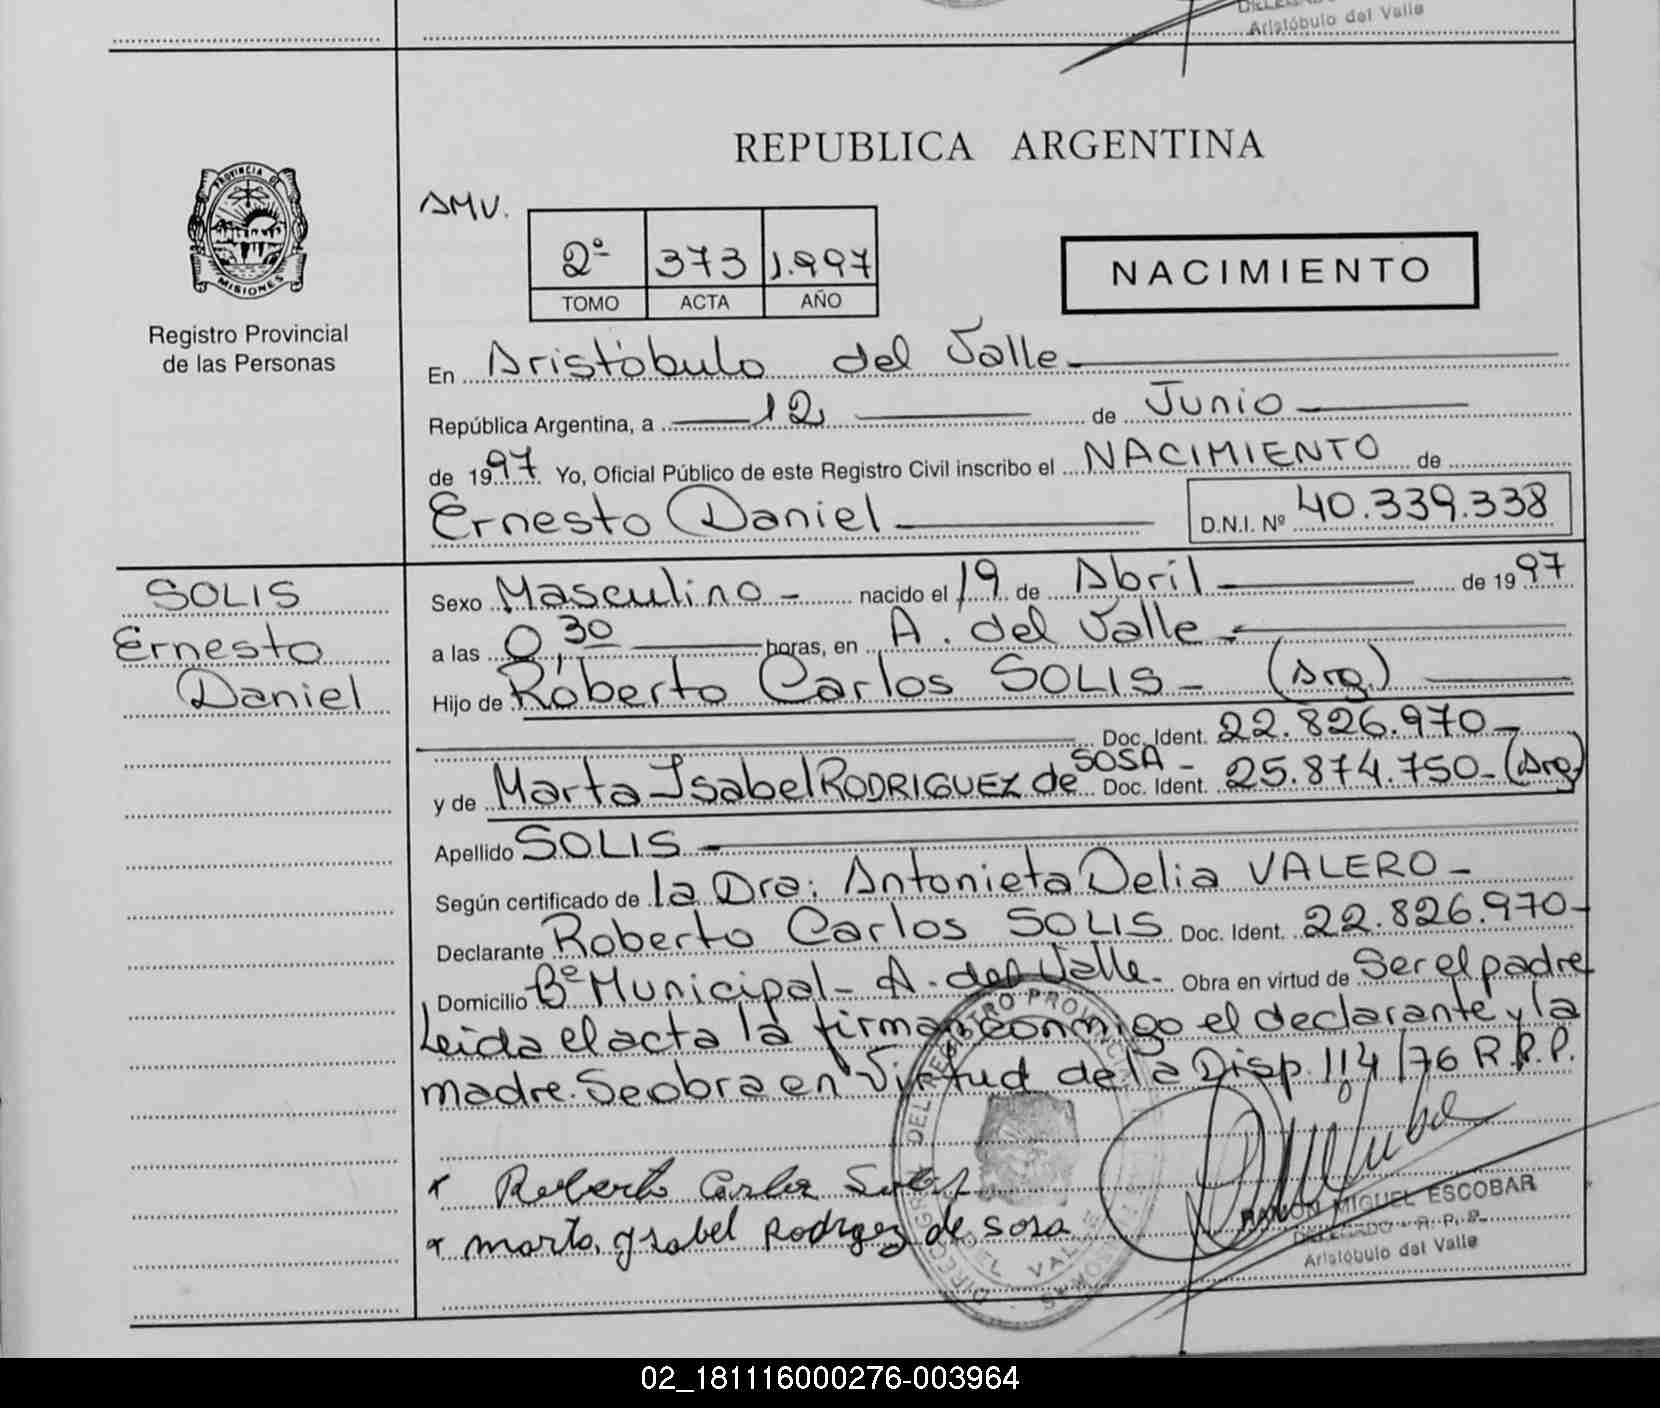 Aristóbulo del Valle
REPUBLICA ARGENTINA
AMV.
2º 373 1.997
TOMO ACTA AÑO
NACIMIENTO
PROVINCIA DE
MISIONES
Registro Provincial
de las Personas
En Aristóbulo del Valle
República Argentina, a 12 de Junio
de 1997. Yo, Oficial Público de este Registro Civil inscribo el NACIMIENTO de
Ernesto Daniel D.N.I. Nº 40.339.338
SOLIS
Ernesto
Daniel
Sexo Masculino - nacido el 19 de Abril de 1997
a las 0,30 horas, en A. del Valle -
Hijo de Roberto Carlos SOLIS - (Arg.)
Doc. Ident. 22.826.970 -
y de Marta Isabel RODRIGUEZ de SOSA - Doc. Ident. 25.874.750 - (Arg)
Apellido SOLIS
Según certificado de la Dra: Antonieta Delia VALERO -
Declarante Roberto Carlos SOLIS Doc. Ident. 22.826.970 -
Domicilio Bº Municipal - A. del Valle - Obra en virtud de Ser el padre
Leida el acta la firman conmigo el declarante y la
madre. Se obra en Virtud de la Disp. 114/76 R.P.P.
x Roberto Carlos Solis
x marta ysabel Rodrgez de sosa
RAMON MIGUEL ESCOBAR
DELEGADO - R. P. P.
Aristóbulo del Valle
02_181116000276-003964